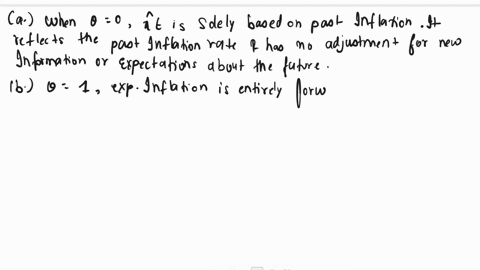 (a.) When θ=0, π̂t is Solely based on past Inflation. It
reflects the past Inflation rate & has no adjustment for new
Information or Expectations about the future.
(b.) θ= 1, exp. Inflation is entirely forw